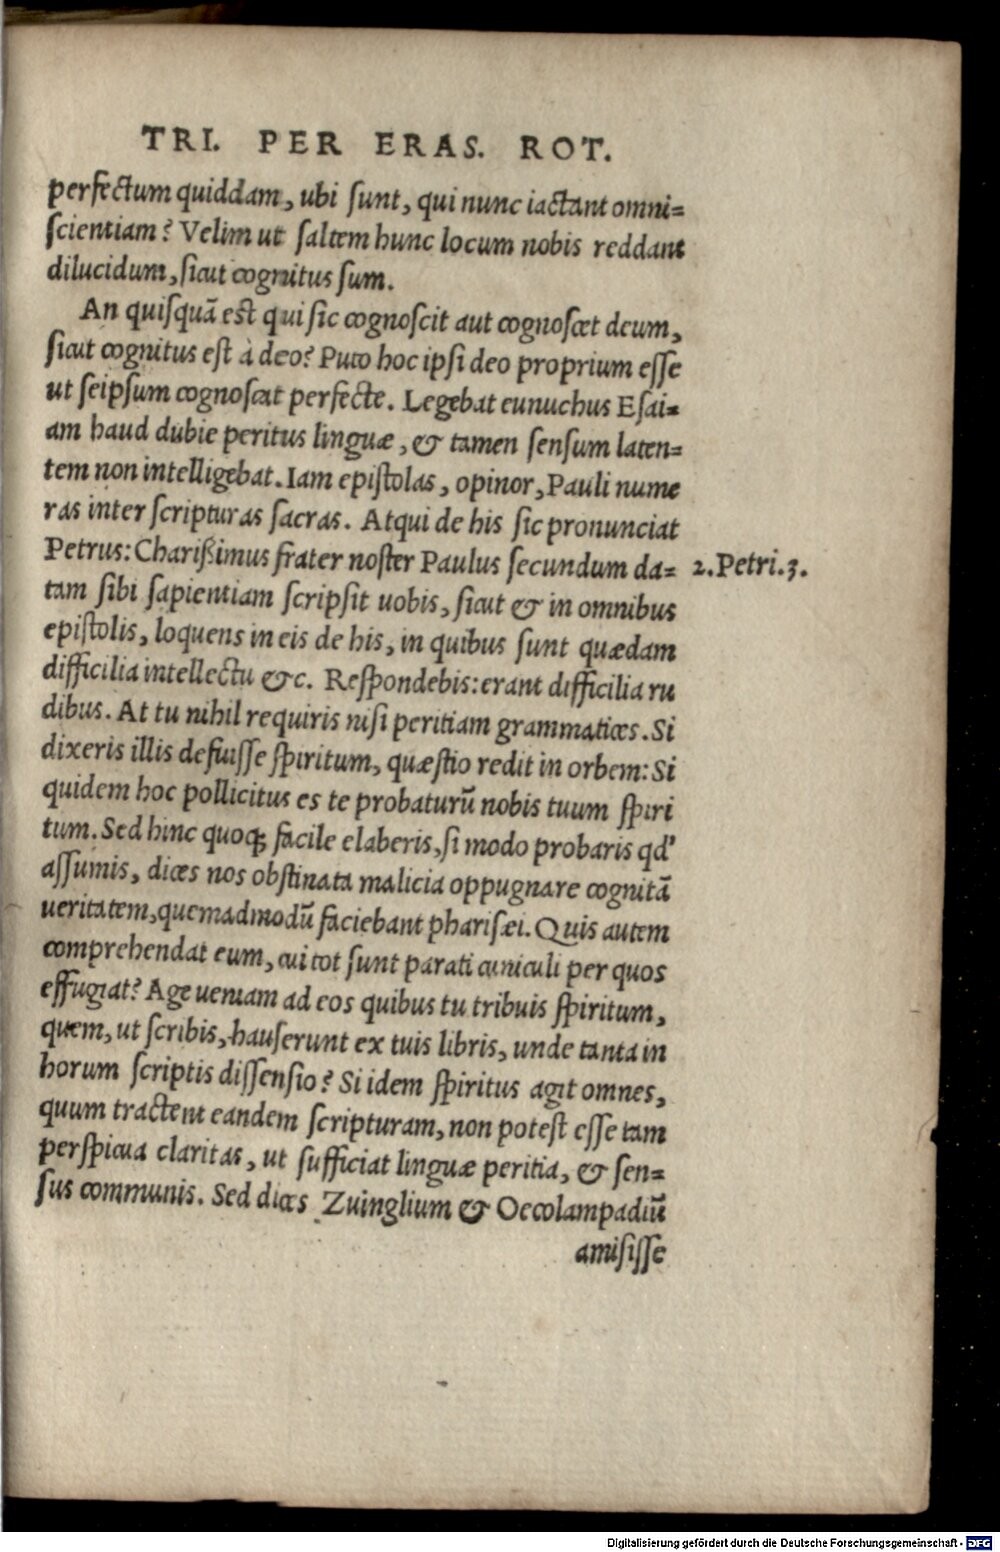 TRI. PER ERAS. ROT.
perfectum quiddam, ubi sunt, qui nunc iactant omni=
scientiam? Velim ut saltem hunc locum nobis reddant
dilucidum, sicut cognitus sum.
An quisquã est qui sic cognoscit aut cognoscet deum,
sicut cognitus est à deo? Puto hoc ipsi deo proprium esse
ut seipsum cognoscat perfecte. Legebat eunuchus Esai=
am haud dubie peritus linguæ, & tamen sensum laten=
tem non intelligebat. Iam epistolas, opinor, Pauli nume
ras inter scripturas sacras. Atqui de his sic pronunciat
Petrus: Charißimus frater noster Paulus secundum da= 2. Petri. 3.
tam sibi sapientiam scripsit uobis, sicut & in omnibus
epistolis, loquens in eis de his, in quibus sunt quædam
difficilia intellectu &c. Respondebis: erant difficilia ru
dibus. At tu nihil requiris nisi peritiam grammatices. Si
dixeris illis defuisse spiritum, quæstio redit in orbem: Si
quidem hoc pollicitus es te probaturũ nobis tuum spiri
tum. Sed hinc quoq; facile elaberis, si modo probaris qd'
assumis, dices nos obstinata malicia oppugnare cognitã
ueritatem, quemadmodũ faciebant pharisæi. Quis autem
comprehendat eum, cui tot sunt parati cuniculi per quos
effugiat? Age ueniam ad eos quibus tu tribuis spiritum,
quem, ut scribis, hauserunt ex tuis libris, unde tanta in
horum scriptis dissensio? Si idem spiritus agit omnes,
quum tractent eandem scripturam, non potest esse tam
perspicua claritas, ut sufficiat linguæ peritia, & sen=
sus communis. Sed dices Zuinglium & Oecolampadiũ
amisisse
Digitalisierung gefördert durch die Deutsche Forschungsgemeinschaft - DFG